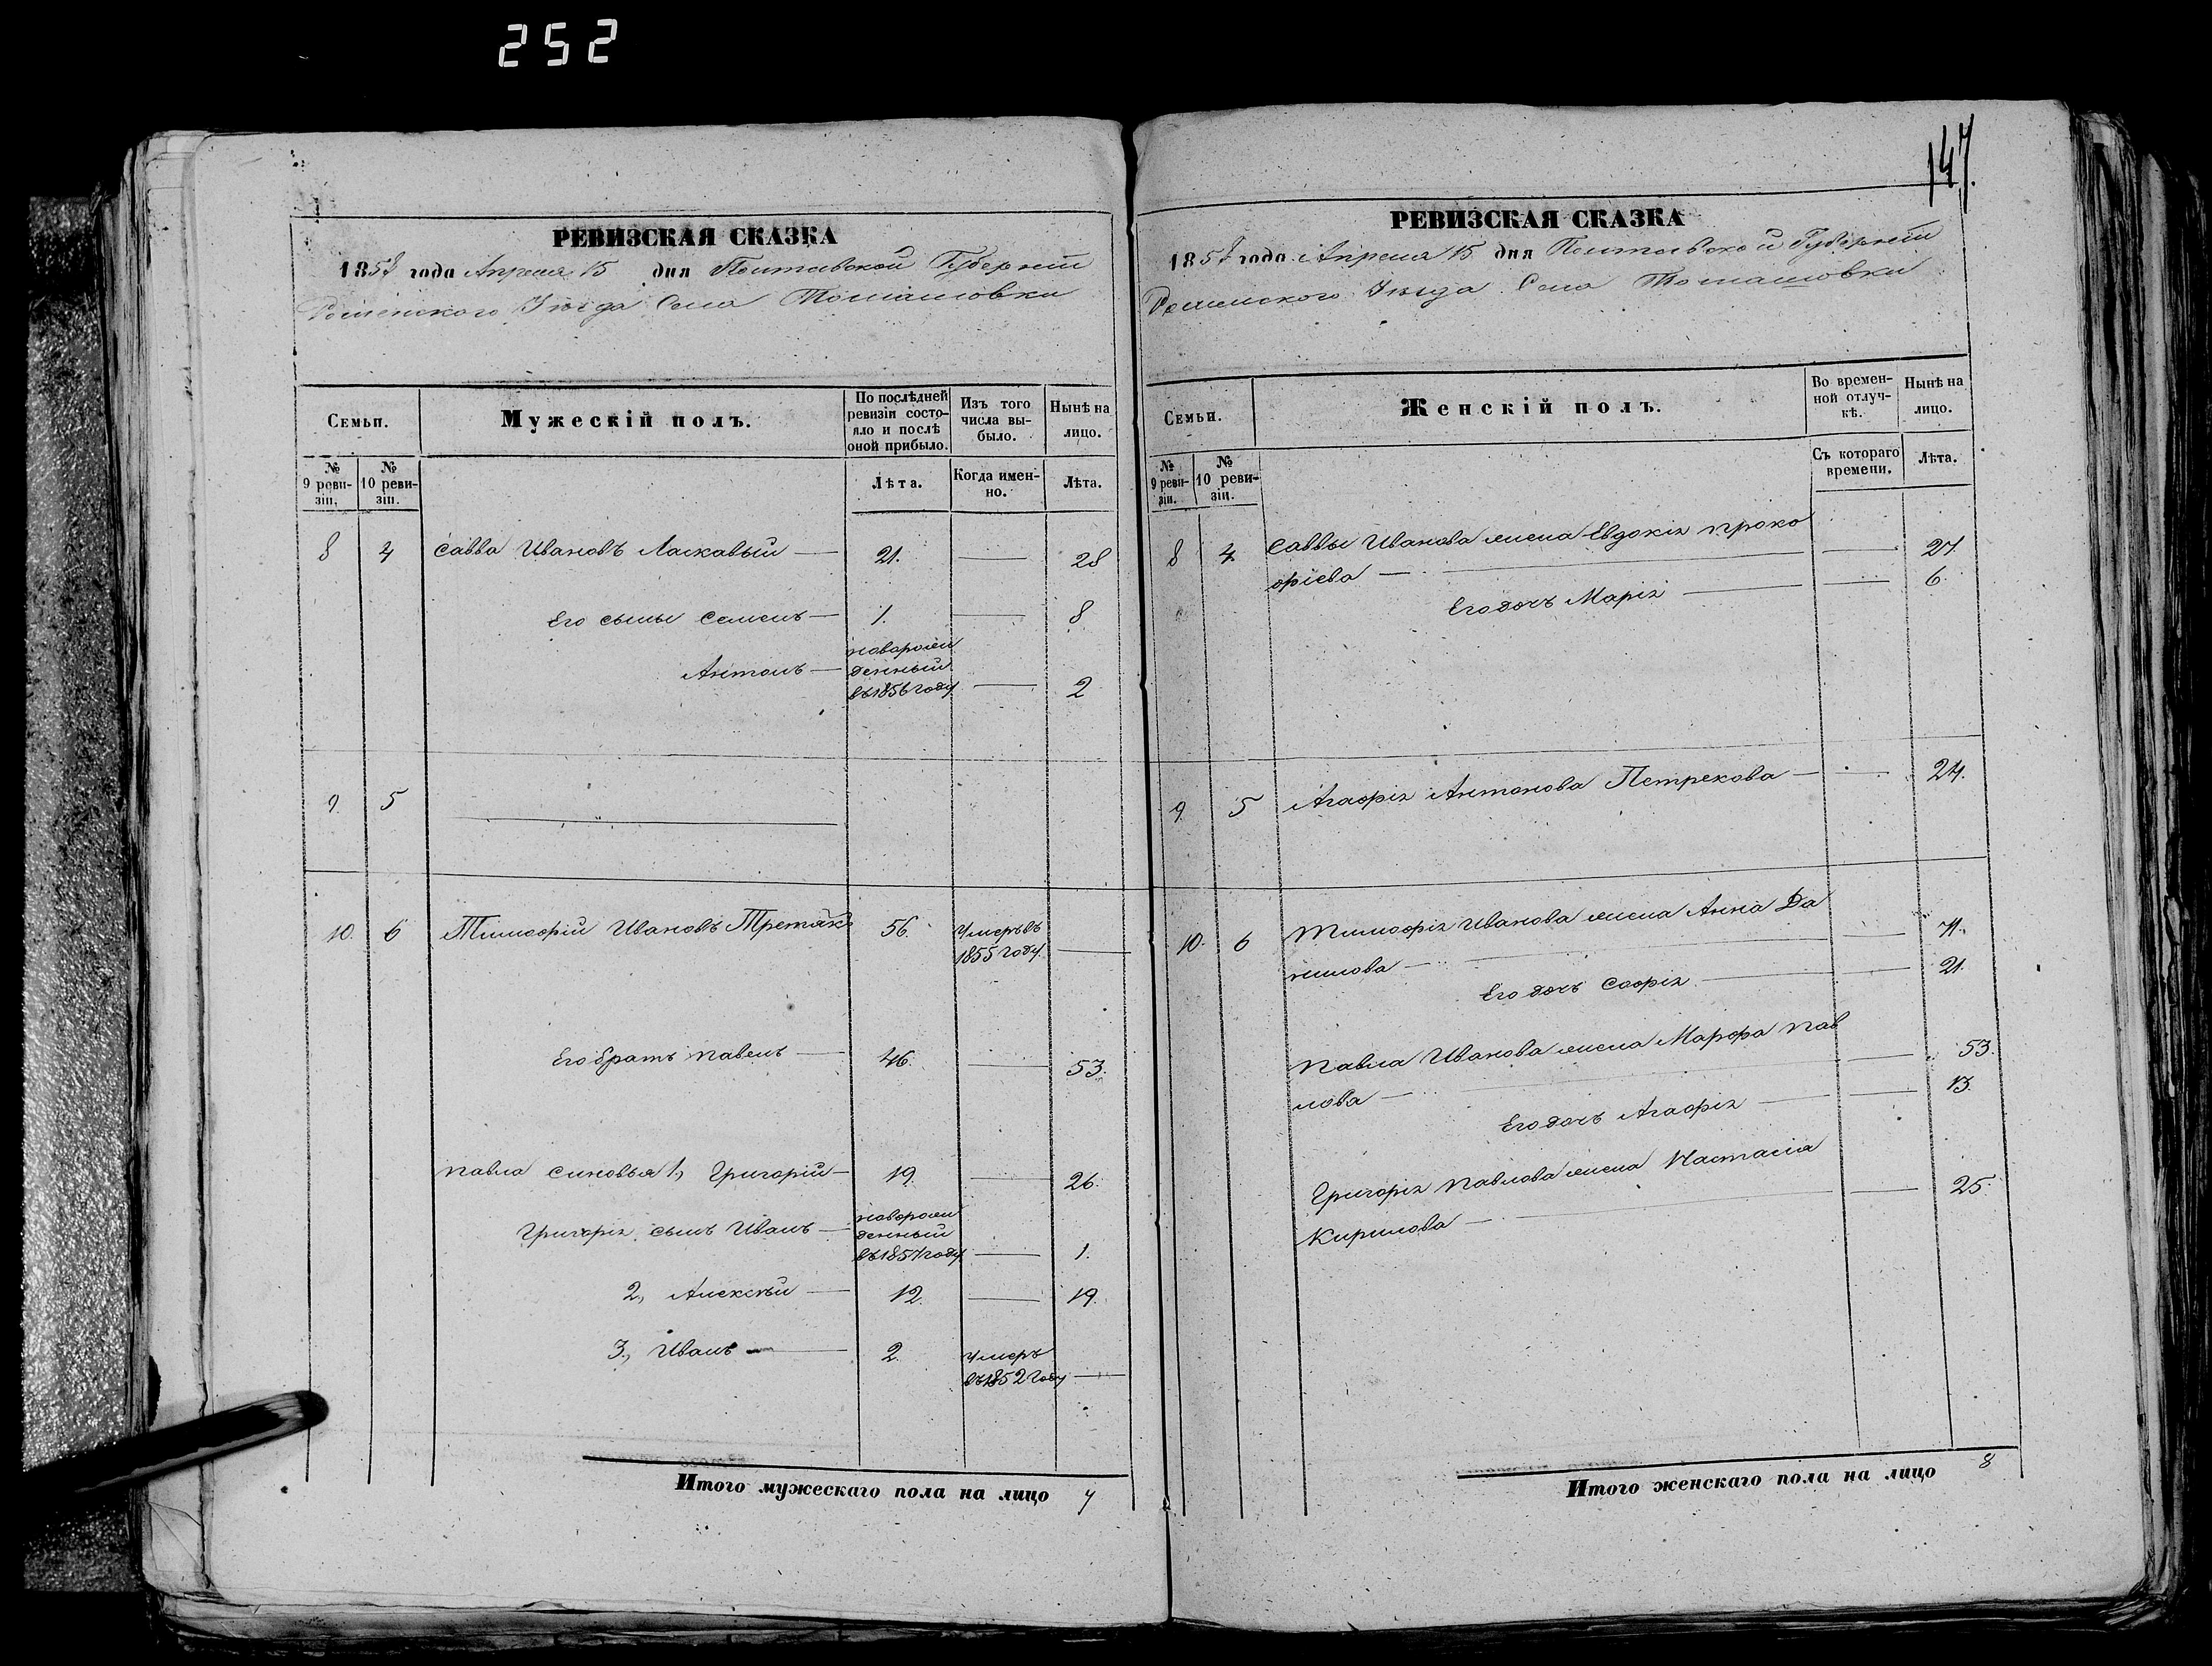 252
147.
РЕВИЗСКАЯ СКАЗКА
1858 года Апреля 15 дня Полтавской Губерніи
Роменского Уѣзда Села Томашовки
Семьи.
Мужескій полъ.
По послѣдней ревизіи состояло и послѣ оной прибыло.
Изъ того числа выбыло.
Нынѣ на лицо.
№ 9 ревизіи.
№ 10 ревизіи.
Лѣта.
Когда именно.
Лѣта.
8 4 Савва Ивановъ Ласкавый — 21. — 28
Его сыны Семенъ — 1. — 8
Антонъ — новорожденный въ 1856 году — 2
9. 5
10. 6 Тимофій Ивановъ Третякъ 56. Умеръ въ 1855 году —
Его братъ Павелъ — 46. — 53.
Павла синовья 1, Григорій — 19. — 26.
Григорія сынъ Иванъ — новорожденный въ 1857 году — 1.
2, Алексѣй — 12. — 19.
3, Иванъ — 2. Умеръ въ 1852 году —
Итого мужескаго пола на лицо 7
РЕВИЗСКАЯ СКАЗКА
1858 года Апреля 15 дня Полтавской Губерніи
Роменского Уѣзда Села Томашовки
Семьи.
Женскій полъ.
Во временной отлучкѣ.
Нынѣ на лицо.
№ 9 ревизіи.
№ 10 ревизіи.
Съ котораго времени.
Лѣта.
8 4. Саввы Иванова жена Евдокія Проко
фіева — — 27.
Его дочь Марія — — 6.
9. 5 Агафія Антонова Петрекова — — 24.
10. 6 Тимофія Иванова жена Анна Да
нилова — — 71.
Его дочь Софія — — 21.
Павла Иванова жена Марфа Пав
лова — — 53.
Его дочь Агафія — — 13.
Григорія Павлова жена Настасія
Кирилова — — 25.
Итого женскаго пола на лицо 8